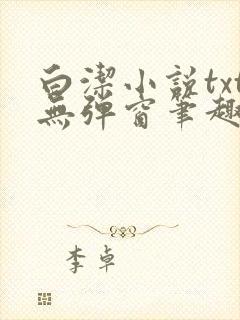 白潔小說txt
無彈窗筆趣
李卓